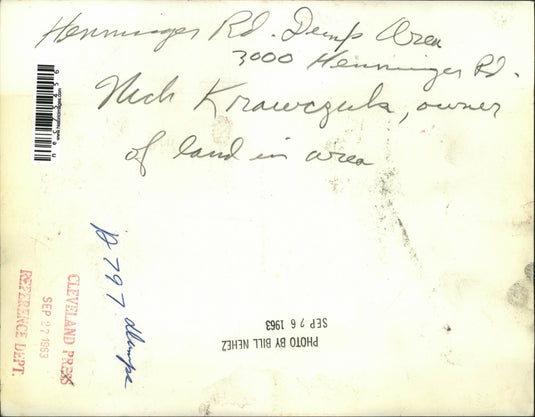 Henninger Rd. Dump Area
3000 Henninger Rd.
Nick Krawczuk, owner
of land in area
D 797 dumps
CLEVELAND PRESS
SEP 27 1963
REFERENCE DEPT.
SEP 26 1963
PHOTO BY BILL NEHEZ